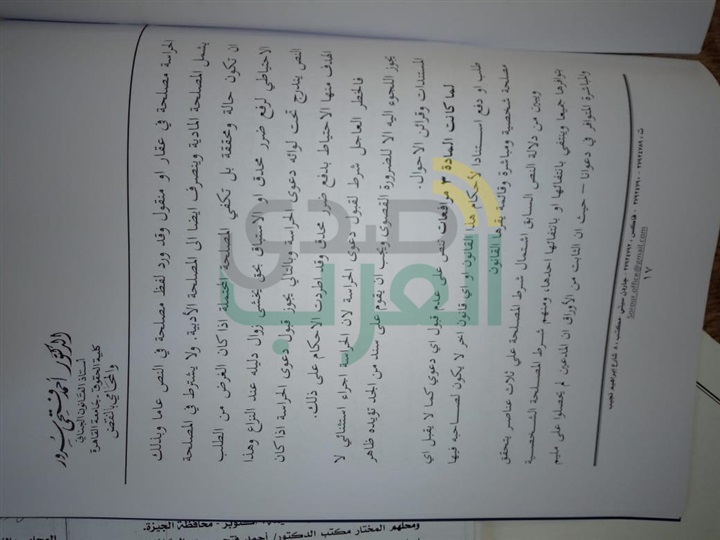 الدكتور أحمد فتحي سرور
أستاذ القانون الجنائي
كلية الحقوق - جامعة القاهرة
والمحامي بالنقض
الحراسة مصلحة في عقار او منقول وقد ورد لفظ مصلحة في النص عاما وبذلك
يشمل المصلحة المادية وينصرف ايضا الى المصلحة الأدبية. ولا يشترط في المصلحة
ان تكون حالة ومحققة بل تكفي المصلحة المحتملة اذا كان الغرض من الطلب
الاحتياطي لرفع ضرر محدق او الاستيثاق بحق يخشى زوال دليله عند النزاع وهذا
النص يندرج تحت لوائه دعوى الحراسة وبالتالي يجوز قبول دعوى الحراسة اذا كان
الهدف منها الاحتياط بدفع ضرر محدق وقد اطردت الاحكام على ذلك.
فالخطر العاجل شرط لقبول دعوى الحراسة لان الحراسة اجراء استثنائي لا
يجوز اللجوء اليه الا للضرورة القصوى ويجب ان يقوم على سند من الجد تؤيده ظاهر
المستندات وقرائن الاحوال.
لما كانت المادة ٣ مرافعات تنص على عدم قبول اي دعوي كما لا يقبل اي
طلب او دفع استنادا لأحكام هذا القانون او اي قانون اخر لا يكون لصاحبه فيها
مصلحة شخصية ومباشرة وقائمة يقرها القانون
ويبين من دلالة النص السابق اشتمال شرط المصلحة على ثلاث عناصر يتحقق
بتوافرها جميعا وينتفي بانتفائها او بانتفاء احدها، ومنهم شرط المصلحة الشخصية
والمباشرة المتوافر في دعوانا – حيث ان الثابت من الأوراق ان المدعين لم يحصلوا على مليم
جاردن سيتي - مكتب ٨ شارع إبراهيم نجيب
Sorour.office@gmail.com
١٧
صدى العرب
أكتوبر - محافظة الجيزة.
ومحلهم المختار مكتب الدكتور/ أحمد فتحي